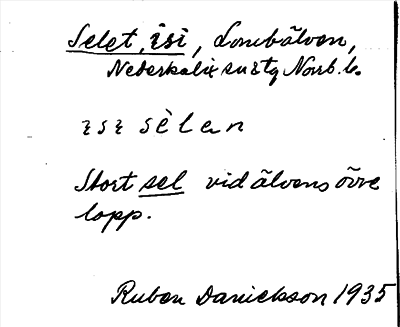 Selet, isi, Lombälven,
Nederkalix sn & tg Norrb. l.
ısı sèlan
Stort sel vid älvens övre
lopp.
Ruben Danielsson 1935